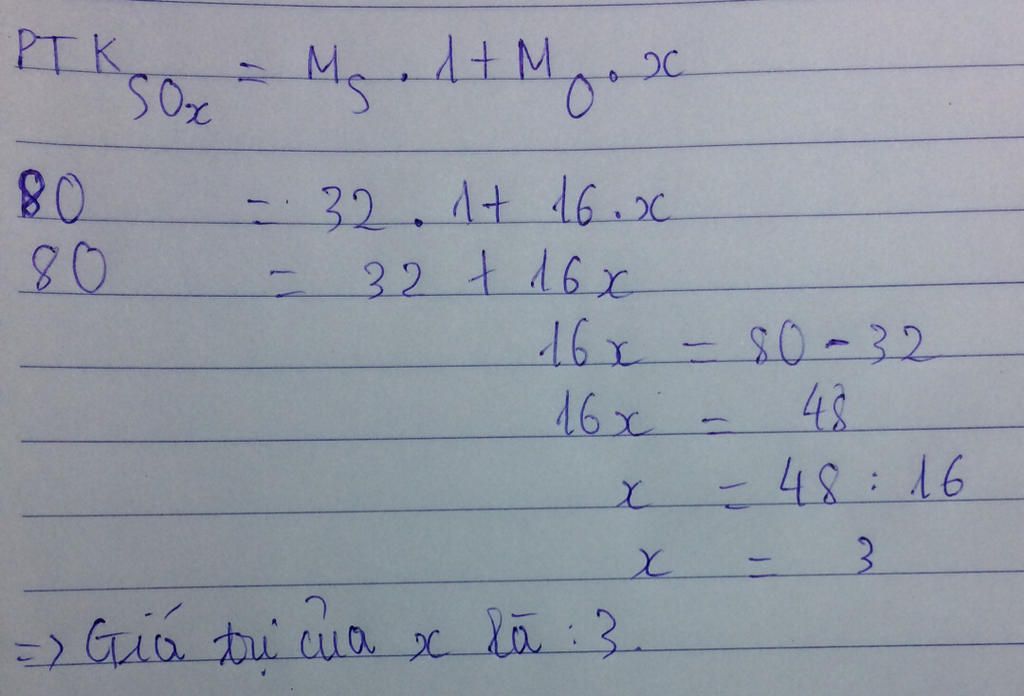 PTK SOx = MS . 1 + MO . x
80 = 32 . 1 + 16 . x
80 = 32 + 16x
16x = 80 - 32
16x = 48
x = 48 : 16
x = 3
=> Giá trị của x là : 3.